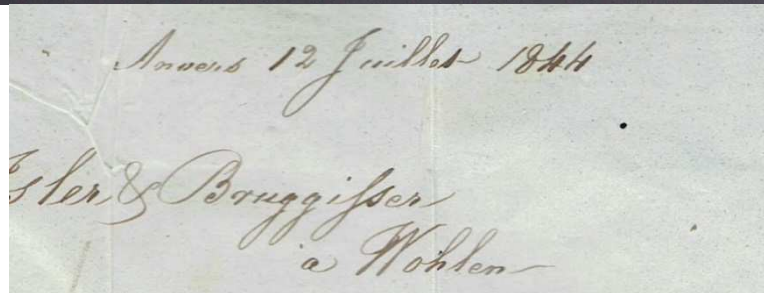 Anvers 12 Juillet 1844
Isler & Bruggisser
à Wohlen